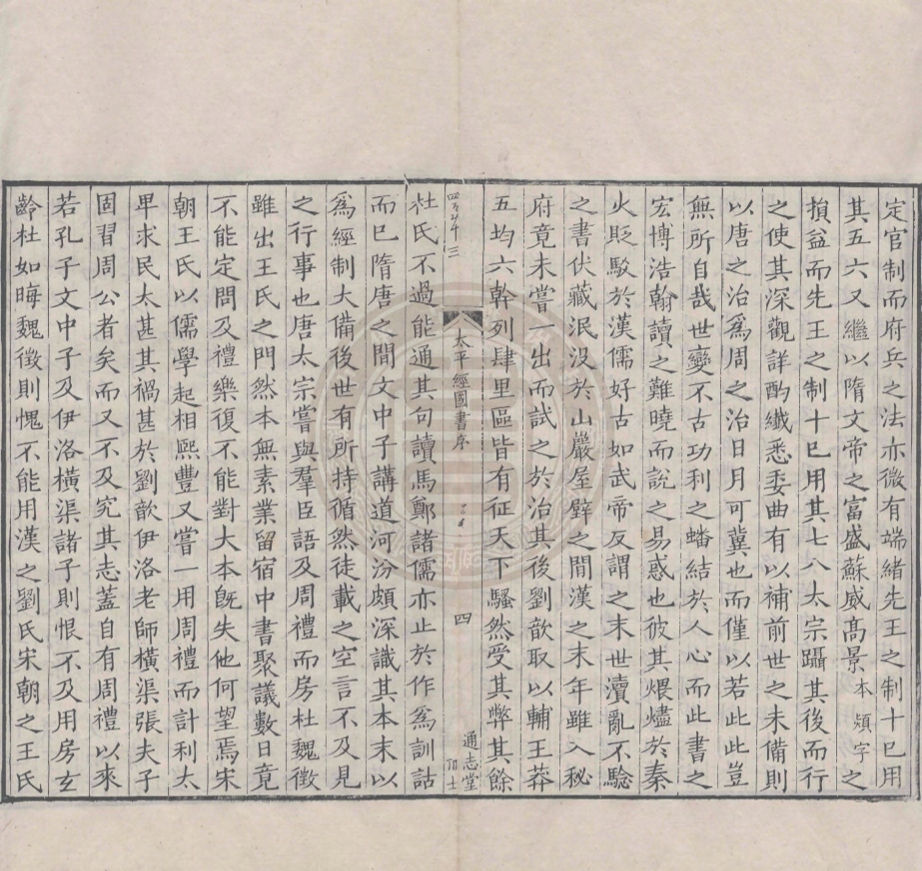 定官制而府兵之法亦微有端緒先王之制十巳用
其五六又繼以隋文帝之富盛蘇威髙景本熲字之
損益而先王之制十巳用其七八太宗躡其後而行
之使其深觀詳酌纎悉委曲有以補前世之未備則
以唐之治爲周之治日月可冀也而僅以若此此豈
無所自㢤世變不古功利之蟠結於人心而此書之
宏博浩翰讀之難曉而說之易惑也彼其煨燼於秦
火貶駮於漢儒好古如武帝反謂之末世瀆亂不驗
之書伏藏泯没於山巖屋壁之間漢之末年雖入秘
府竟未嘗一出而試之於治其後劉歆取以輔王莽
五均六幹列肆里區皆有征天下騷然受其弊其餘
太平經國書序
四
通志堂
杜氏不過能通其句讀馬鄭諸儒亦止於作爲訓詁
而巳隋唐之間文中子講道河汾頗深識其本末以
爲經制大備後世有所持循然徒載之空言不及見
之行事也唐太宗嘗與羣臣語及周禮而房杜魏徵
雖出王氏之門然本無素業留宿中書聚議數日竟
不能定問及禮樂復不能對大本旣失他何望焉宋
朝王氏以儒學起相熙豐又嘗一用周禮而計利太
卑求民太甚其禍甚於劉歆伊洛老師橫渠張夫子
固習周公者矣而又不及究其志蓋自有周禮以來
若孔子文中子及伊洛橫渠諸子則恨不及用房玄
齡杜如晦魏徵則愧不能用漢之劉氏宋朝之王氏